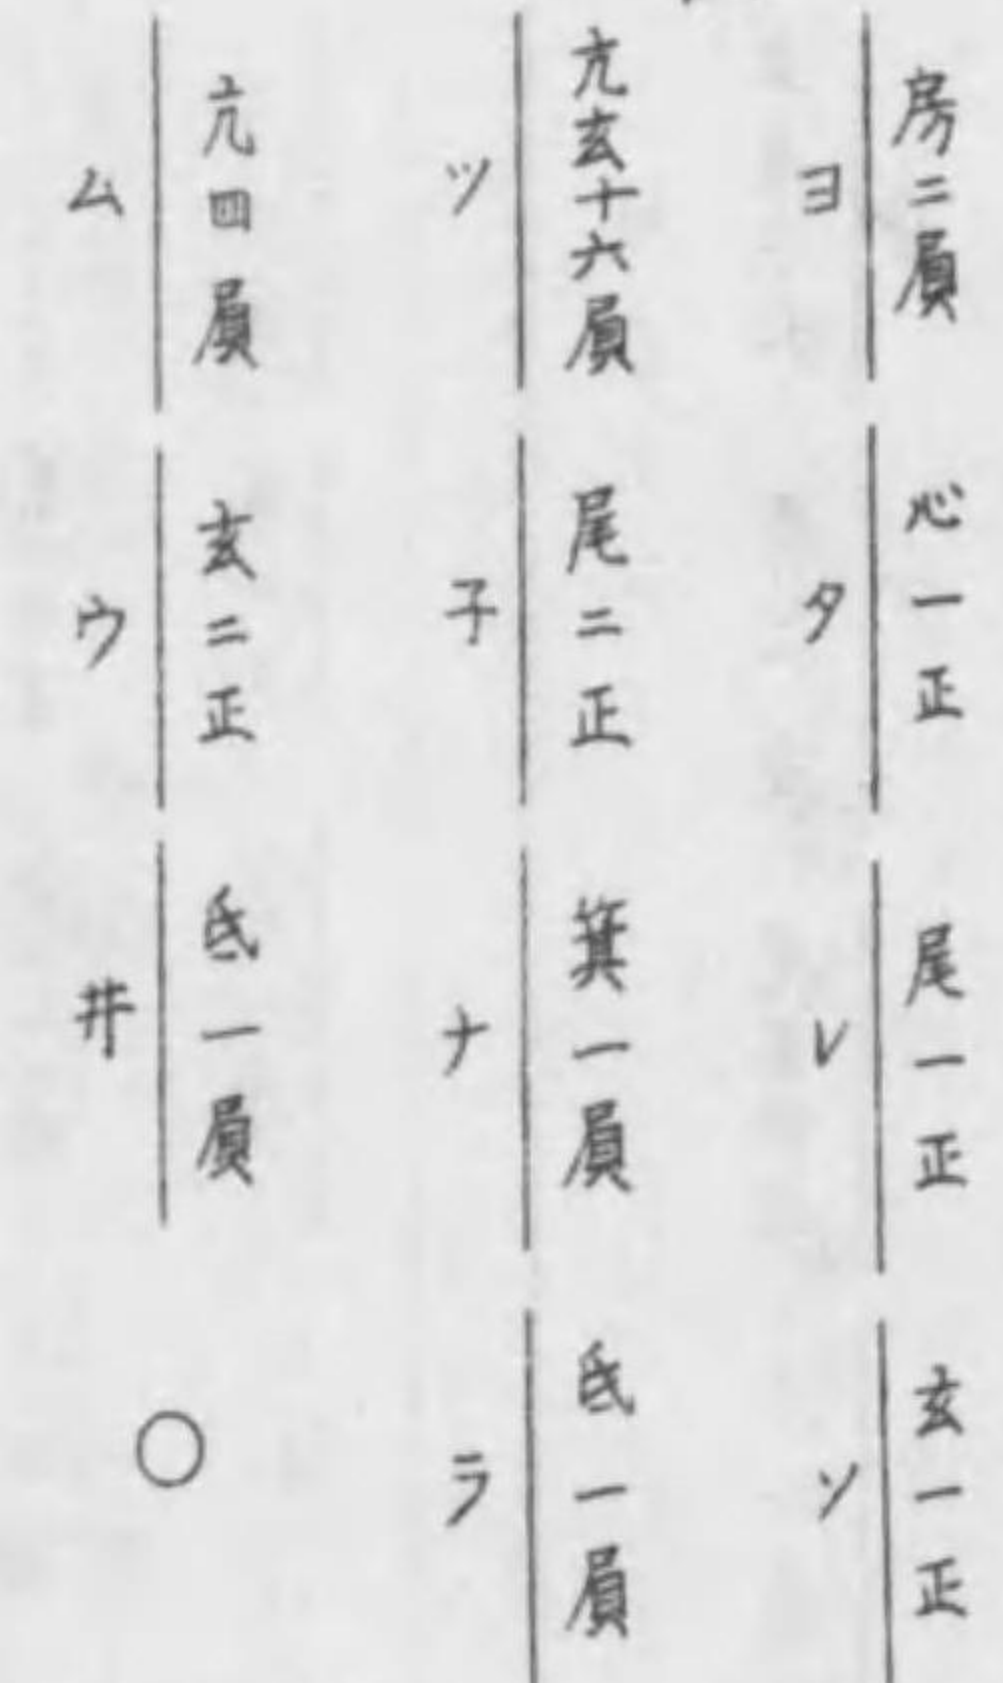 房二屓
ヨ
心一正
タ
尾一正
レ
玄一正
ソ
亢玄十六屓
ツ
尾二正
子
箕一屓
ナ
氐一屓
ラ
亢四屓
ム
玄二正
ウ
氐一屓
井
○